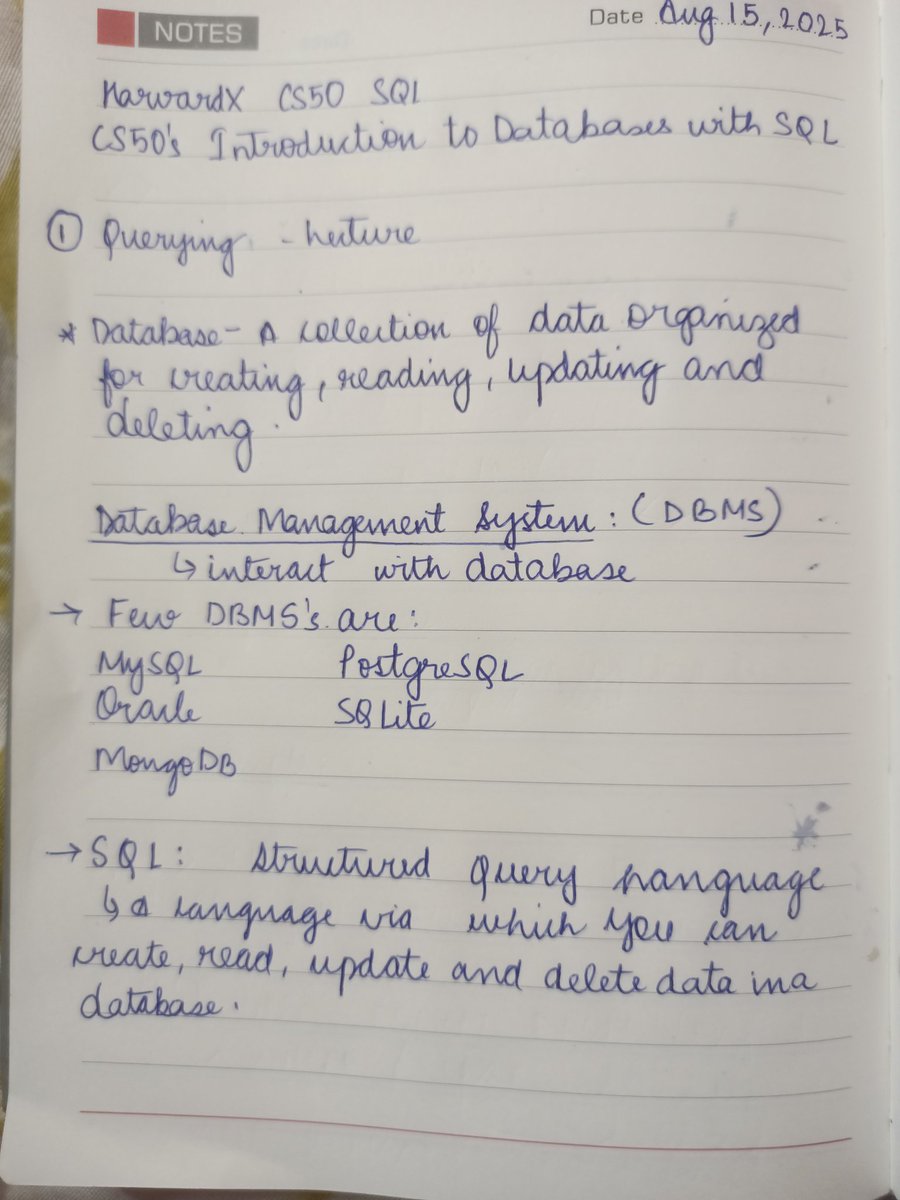 NOTES
Date Aug 15, 2025
HarvardX CS50 SQL
CS50's Introduction to Databases with SQL
① Querying - Lecture
* Database - A collection of data organized
for creating, reading, updating and
deleting.
Database Management System : (DBMS)
↳ interact with database
→ Few DBMS's are:
MySQL PostgreSQL
Oracle SQLite
MongoDB
→ SQL: Structured Query Language
↳ a language via which you can
create, read, update and delete data in a
database.